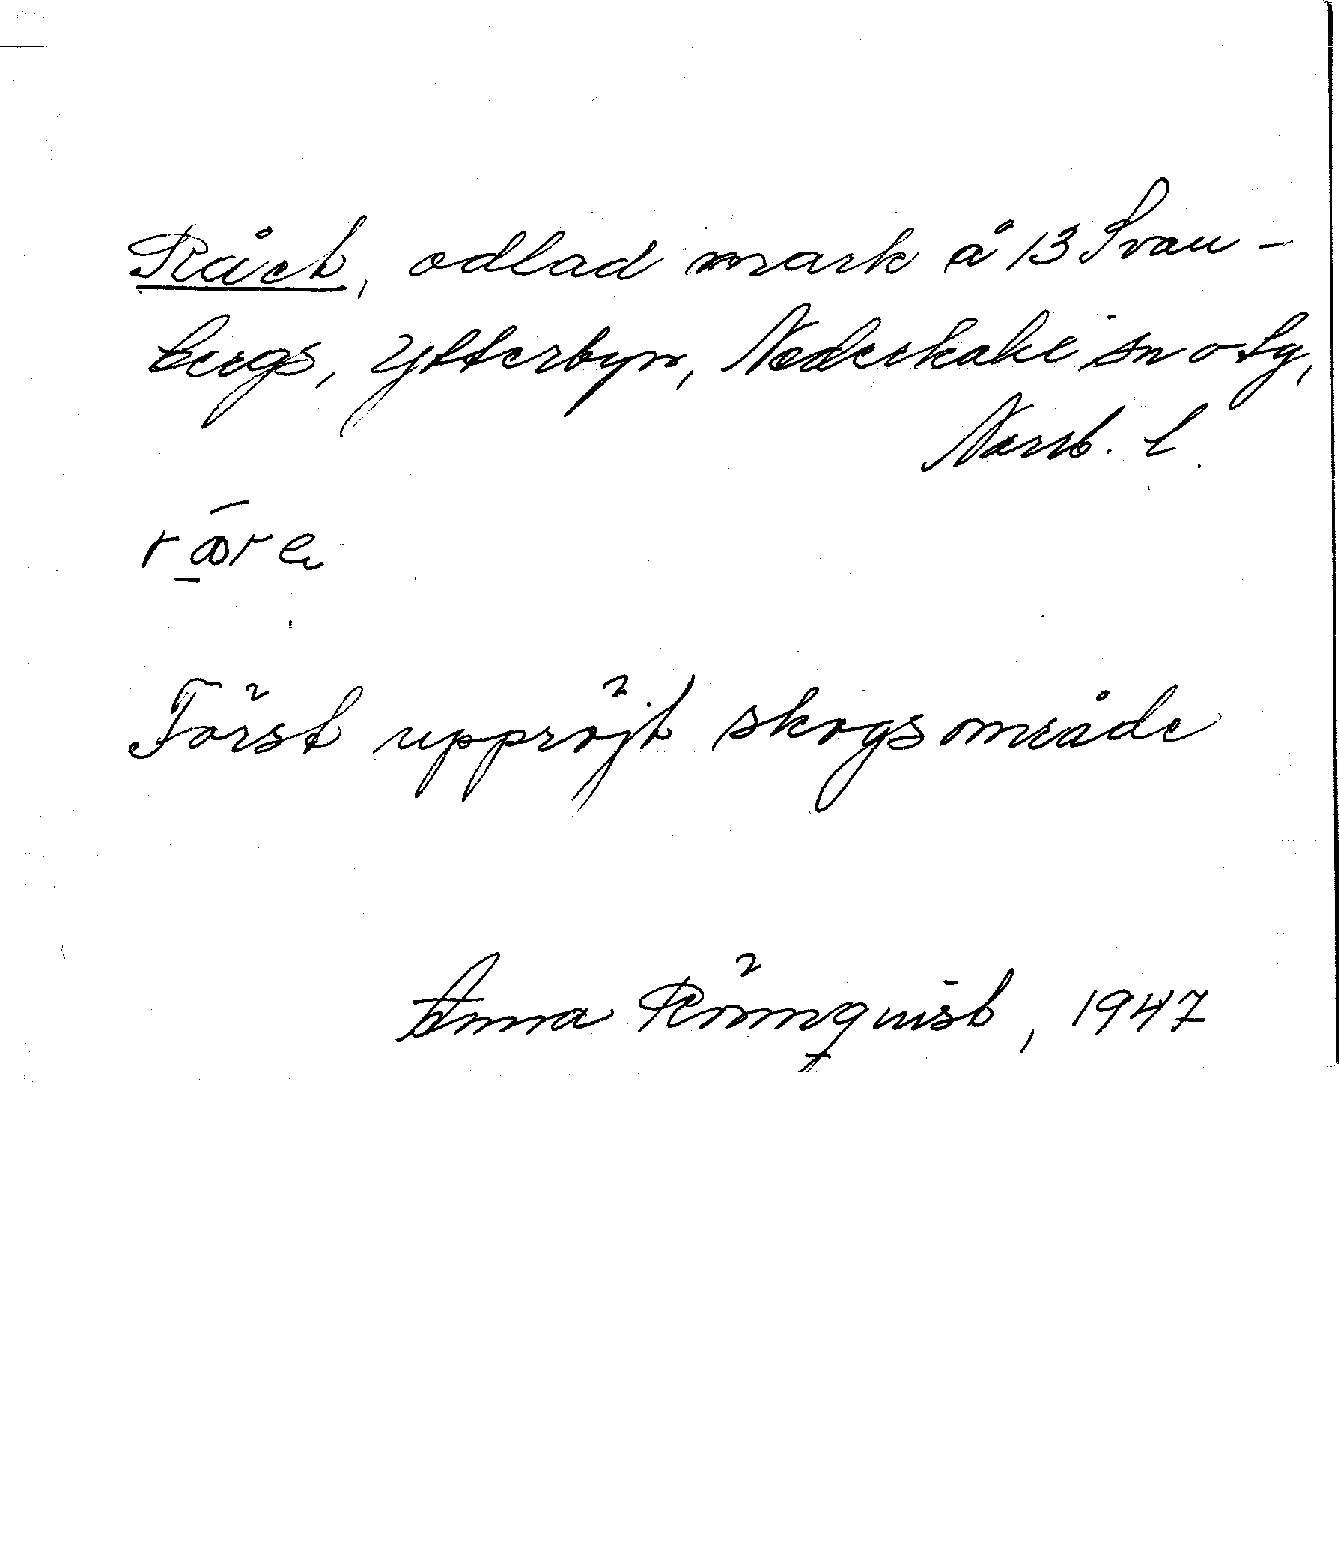 Rået, odlad mark å 13 Svan-
bergs, Ytterbyn, Nederkalix sn o ty,
Norrb. l.
Först uppröjt skogsområde
Anna Rönnquist, 1947